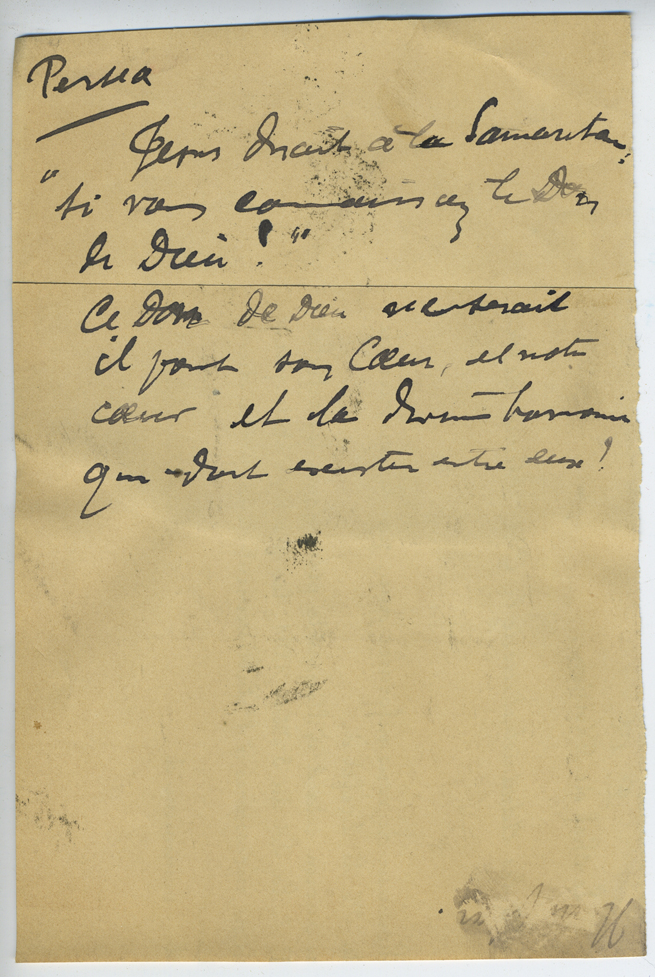 Persia
Jesus disait à la Samaritaine
"Si vous connaissiez le Don
de Dieu!"
Ce Don de Dieu ne serait
il point son Cœur, et notre
cœur et la divine harmonie
qui doit exister entre eux!